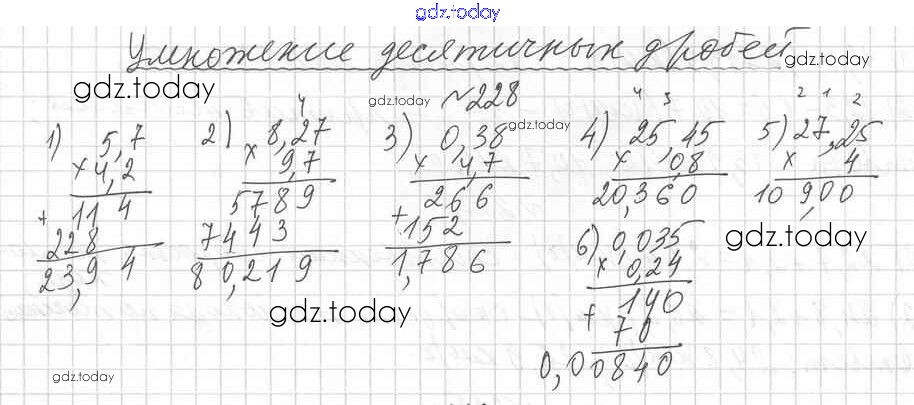 gdz.today
Умножение десятичных дробей
gdz.today
gdz.today
№228
gdz.today
gdz.today
1) 5,7
× 4,2
+ 114
228
23,94
2) 4
8,27
× 9,7
5789
7443
80,219
3) 0,38
× 4,7
266
+ 152
1,786
4) 4 3
25,45
× ,08
20,360
5) 2 1 2
27,25
× 4
10 9,00
6) 0,035
× 0,24
+ 140
70
0,00840
gdz.today
gdz.today
gdz.today